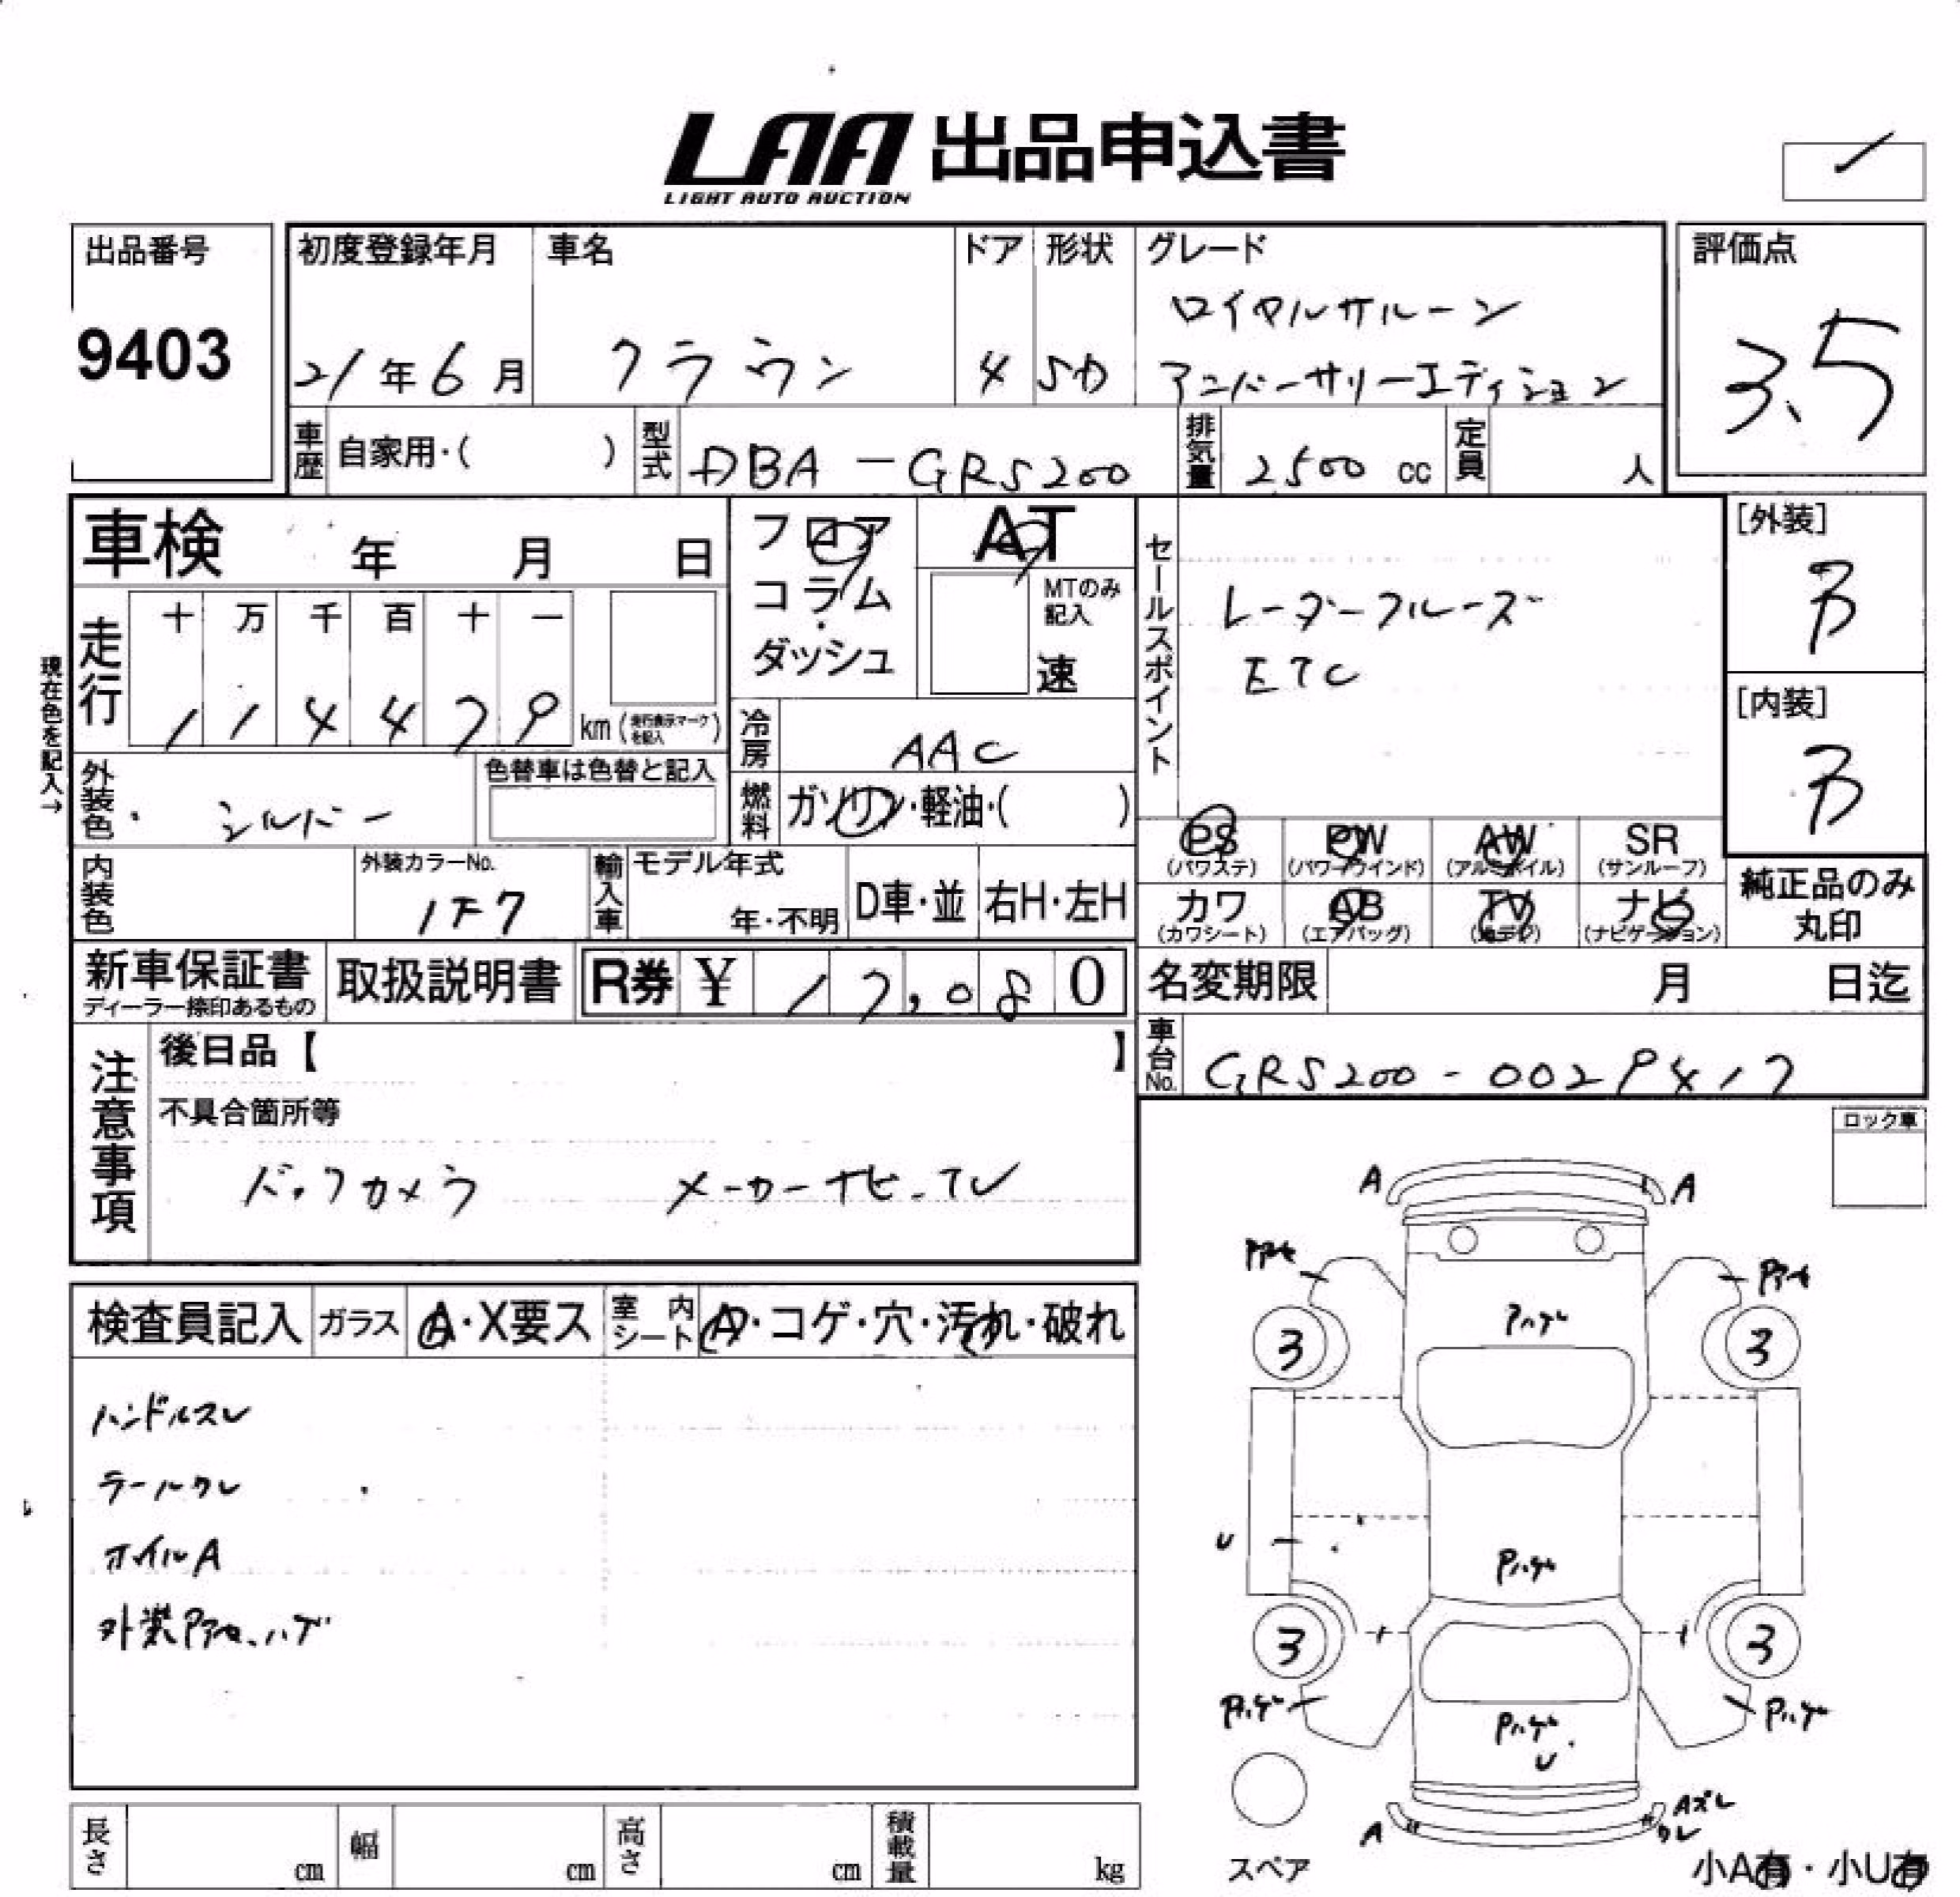 LAA 出品申込書
LIGHT AUTO AUCTION
出品番号
9403
初度登録年月
21年6月
車名
クラウン
ドア
4
形状
SD
グレード
ロイヤルサルーン
アニバーサリーエディション
評価点
3.5
車歴 自家用・( )
型式 DBA-GRS200
排気量 2500 cc
定員 人
車検 年 月 日
フロア
コラム
ダッシュ
AT
MTのみ
記入
速
セールスポイント
レーダークルーズ
ETC
[外装]
B
[内装]
B
現在色を記入→
走行
十 万 千 百 十 一
1 1 4 4 7 9 km (走行表示マークを記入)
冷房 AAC
燃料 ガソリン・軽油・( )
外装色 シルバー
色替車は色替と記入
PS
(パワステ)
PW
(パワーウインド)
AW
(アルミホイル)
SR
(サンルーフ)
カワ
(カワシート)
AB
(エアバッグ)
TV
ナビ
(ナビゲーション)
純正品のみ
丸印
内装色
外装カラーNo.
1F7
輸入車
モデル年式
年・不明
D車・並
右H・左H
新車保証書
ディーラー捺印あるもの
取扱説明書
R券 ¥ 17,080
名変期限 月 日迄
車台No. GRS200-0029417
注意事項
後日品【 】
不具合箇所等
バックカメラ メーカーナビ・TV
ロック車
検査員記入 ガラス A・X要ス 室内シート A・コゲ・穴・汚れ・破れ
ハンドルスレ
テールワレ
ホイルA
外装Pアセ、ハゲ
A A
Pアセ Pアセ
Pハゲ
3 3
U
Pハゲ
3 3
Pハゲ Pハゲ
Pハゲ
U
A Aズレ
ワレ
スペア
小A有・小U有
長さ cm
幅 cm
高さ cm
積載量 kg